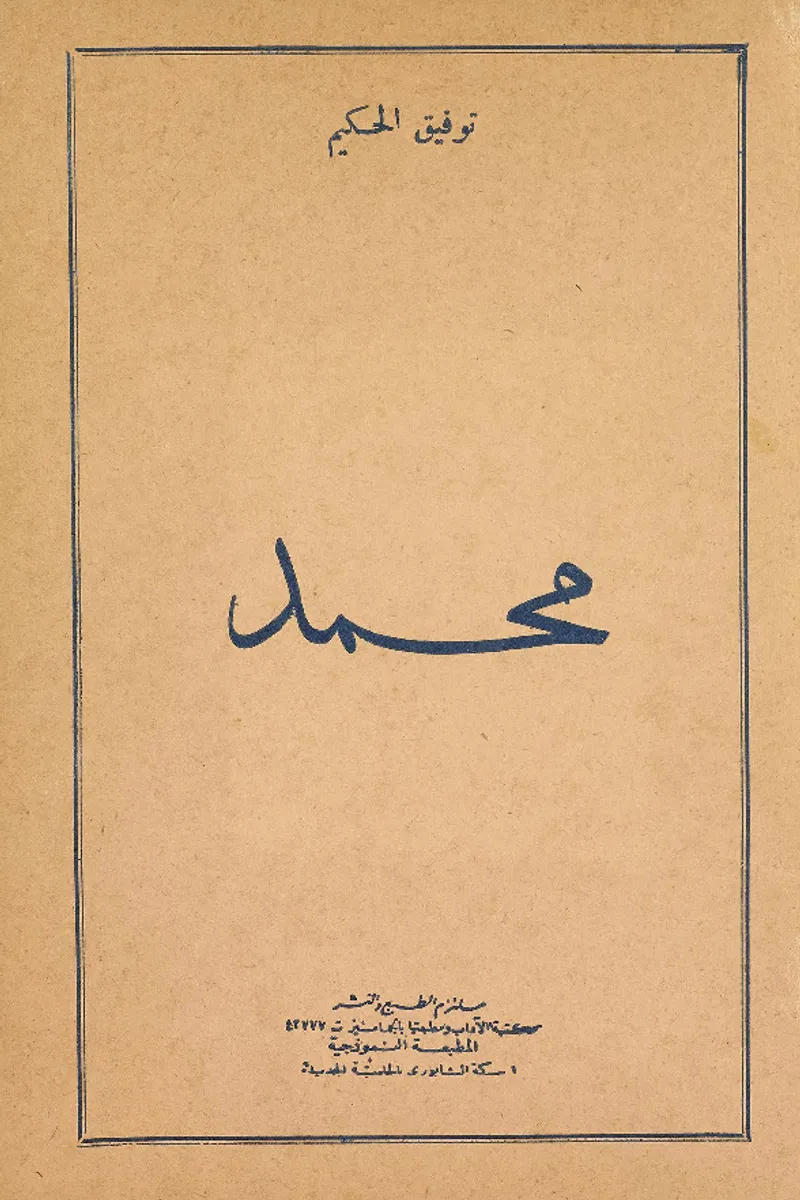 توفيق الحكيم
محمد
ملتزم الطبع والنشر
مكتبة الآداب ومطبعتها بالجماميز ت ٤٢٧٧٧
المطبعة النموذجية
٦ سكة الشابورى بالحلمية الجديدة